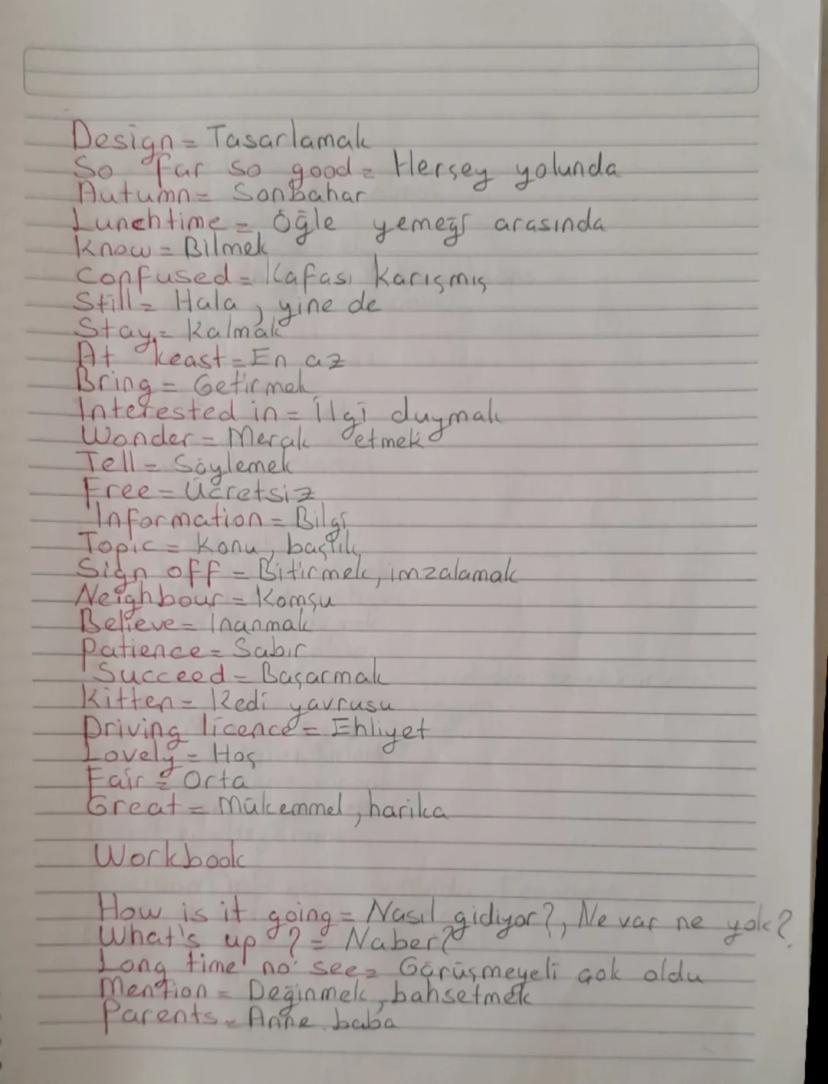 Design = Tasarlamak
So far so good = Herşey yolunda
Autumn = Sonbahar
Lunchtime = Öğle yemeği arasında
Know = Bilmek
Confused = Kafası karışmış
Still = Hala, yine de
Stay = Kalmak
At keast = En az
Bring = Getirmek
Interested in = İlgi duymak
Wonder = Merak etmek
Tell = Söylemek
Free = Ücretsiz
Information = Bilgi
Topic = Konu, başlık
Sign off = Bitirmek, imzalamak
Neighbour = Komşu
Believe = Inanmak
Patience = Sabır
Succeed = Başarmak
Kitten = Kedi yavrusu
Driving licence = Ehliyet
Lovely = Hoş
Fair = Orta
Great = Mükemmel, harika
Workbook
How is it going = Nasıl gidiyor?, Ne var ne yok?
What's up? = Naber?
Long time no see = Görüşmeyeli çok oldu
Mention = Değinmek, bahsetmek
Parents = Anne baba